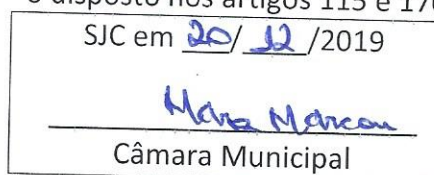 o disposto nos artigos 115 e 170
SJC em 20/ 12 /2019
Câmara Municipal